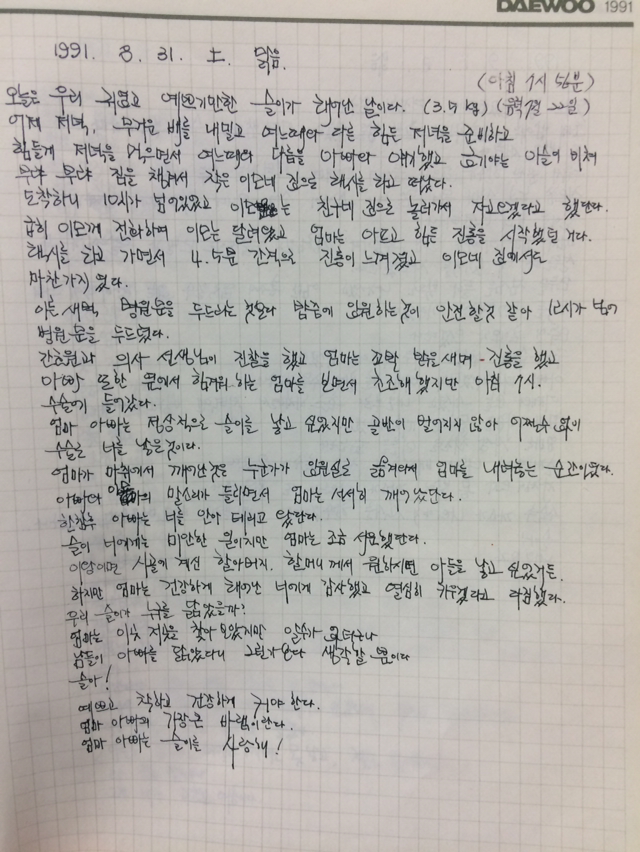 DAEWOO 1991
1991. 8. 31. 土. 맑음.
(아침 7시 56분)
오늘은 우리 귀엽고 예쁘기만한 솔이가 태어난 날이다. (3.5 kg) (음력 7월 22일)
어제 저녁, 무거운 배를 내밀고 여느때와 다른 힘든 저녁을 준비하고
힘들게 저녁을 먹으면서 여느때와 다름을 아빠와 얘기했고 효기야는 이슬이 비쳐
부랴 부랴 짐을 챙겨서 작은 이모네 집으로 택시를 타고 떠났다.
도착하니 10시가 넘어있었고 이모는 친구네 집으로 놀러가서 자고오겠다고 했단다.
급히 이모께 전화하여 이모는 달려왔고 엄마는 아프고 힘든 진통을 시작했던 거다.
택시를 타고 가면서 4.5분 간격으로 진통이 느껴졌고 이모네 집에서도
마찬가지였다.
이른 새벽, 병원문을 두드리는 것보다 밤중에 입원하는것이 안전할것 같아 12시가 넘어
병원문을 두드렸다.
간호원과 의사 선생님이 진찰을 했고 엄마는 꼬박 밤을 새며 진통을 했고
아빠 또한 옆에서 힘겨워 하는 엄마를 보면서 초조해 했지만 아침 7시.
수술에 들어갔다.
엄마 아빠는 정상적으로 솔이를 낳고 싶었지만 골반이 벌어지지 않아 어쩔수 없이
수술로 너를 낳은것이다.
엄마가 마취에서 깨어난것은 누군가가 입원실로 옮겨와서 엄마를 내려놓는 순간이었다.
아빠와 이모의 말소리가 들리면서 엄마는 서서히 깨어났단다.
한참후 아빠는 너를 안아 데리고 왔단다.
솔이 너에게는 미안한 일이지만 엄마는 조금 서운했단다.
이왕이면 시골에 계신 할아버지. 할머니께서 원하시던 아들을 낳고 싶었거든.
하지만 엄마는 건강하게 태어난 너에게 감사했고 열심히 키우겠다고 다짐했다.
우리 솔이가 누구를 닮았을까?
엄마는 이곳 저곳을 찾아 보았지만 알수가 없더구나
남들이 아빠를 닮았다니 그런가보다 생각할 뿐이다
솔아!
예쁘고 착하고 건강하게 커야 한다.
엄마 아빠의 가장큰 바램이란다.
엄마 아빠는 솔이를 사랑해!